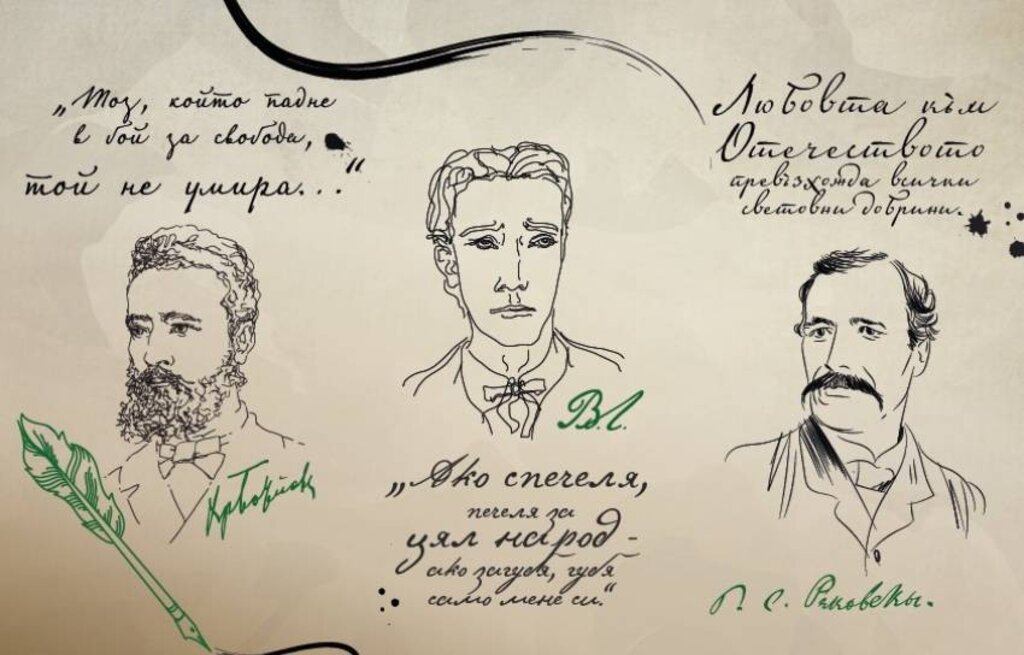 „Тоз, който падне
в бой за свобода,
той не умира..."
Любовта към
Отечеството
превъзхожда всички
световни добрини.
В.Л.
„Ако спечеля,
печеля за
цял народ -
ако загубя, губя
само мене си."
Хр Ботйов
Г. С. Раковскы.